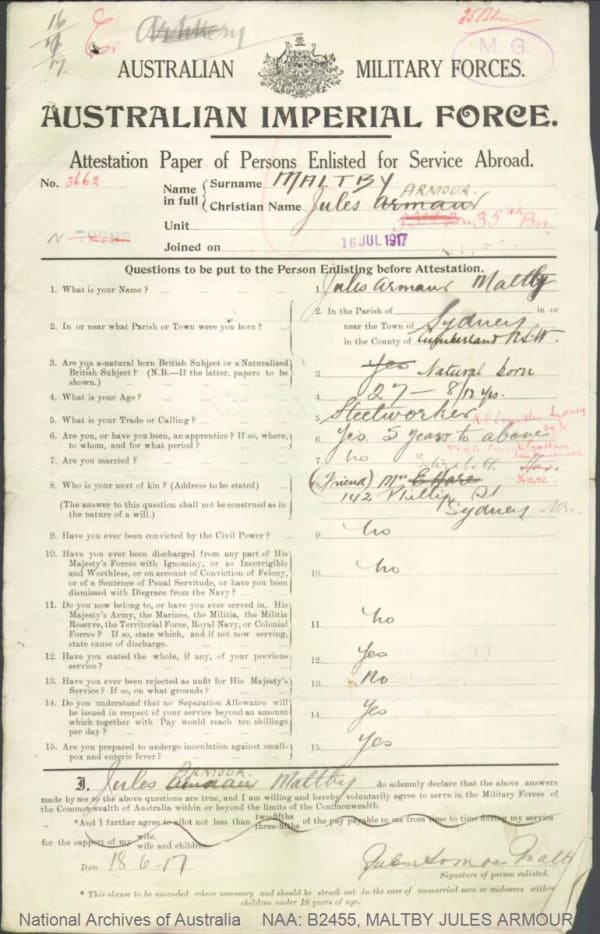 16
17
Artillery
M. G.
AUSTRALIAN MILITARY FORCES.
AUSTRALIAN IMPERIAL FORCE.
Attestation Paper of Persons Enlisted for Service Abroad.
No. 3662
Name in full
Surname MALTBY
ARMOUR.
Christian Name Jules Armaur
Unit 35th Bn
N
Joined on 16 JUL 1917
Questions to be put to the Person Enlisting before Attestation.
1. What is your Name? ... 1. Jules Armaur Maltby
2. In or near what Parish or Town were you born? ... 2. In the Parish of in or
near the Town of Sydney
in the County of Cumberland N.S.W.
3. Are you a natural born British Subject or a Naturalized British Subject? (N.B.—If the latter, papers to be shown.) 3. Yes Natural born
4. What is your Age? ... 4. 27 - 8/12 yrs.
5. What is your Trade or Calling? ... 5. Steelworker
6. Are you, or have you been, an apprentice? If so, where, to whom, and for what period? 6. Yes. 5 years to above
7. Are you married? ... 7. No
Elizabeth
8. Who is your next of kin? (Address to be stated) 8. (Friend) Mrs E Hare
Hare.
142 Phillip St
Sydney
(The answer to this question shall not be construed as in the nature of a will.)
9. Have you ever been convicted by the Civil Power? ... 9. No
10. Have you ever been discharged from any part of His Majesty's Forces with Ignominy, or as Incorrigible and Worthless, or on account of Conviction of Felony, or of a Sentence of Penal Servitude, or have you been dismissed with Disgrace from the Navy? ... 10. No
11. Do you now belong to, or have you ever served in, His Majesty's Army, the Marines, the Militia, the Militia Reserve, the Territorial Force, Royal Navy, or Colonial Forces? If so, state which, and if not now serving, state cause of discharge. 11. No
12. Have you stated the whole, if any, of your previous service? ... 12. Yes
13. Have you ever been rejected as unfit for His Majesty's Service? If so, on what grounds? 13. No
14. Do you understand that no Separation Allowance will be issued in respect of your service beyond an amount which together with Pay would reach ten shillings per day? ... 14. Yes
15. Are you prepared to undergo inoculation against small-pox and enteric fever? ... 15. Yes
ARMOUR.
I, Jules Armaur Maltby do solemnly declare that the above answers
made by me to the above questions are true, and I am willing and hereby voluntarily agree to serve in the Military Forces of
the Commonwealth of Australia within or beyond the limits of the Commonwealth.
*And I further agree to allot not less than two-fifths three-fifths of the pay payable to me from time to time during my service
for the support of my wife. wife and children.
Date 18-6-17 Jules Armour Maltby
Signature of person enlisted.
* This clause to be amended where necessary and should be struck out in the case of unmarried men or widowers without
children under 18 years of age.
National Archives of Australia NAA: B2455, MALTBY JULES ARMOUR